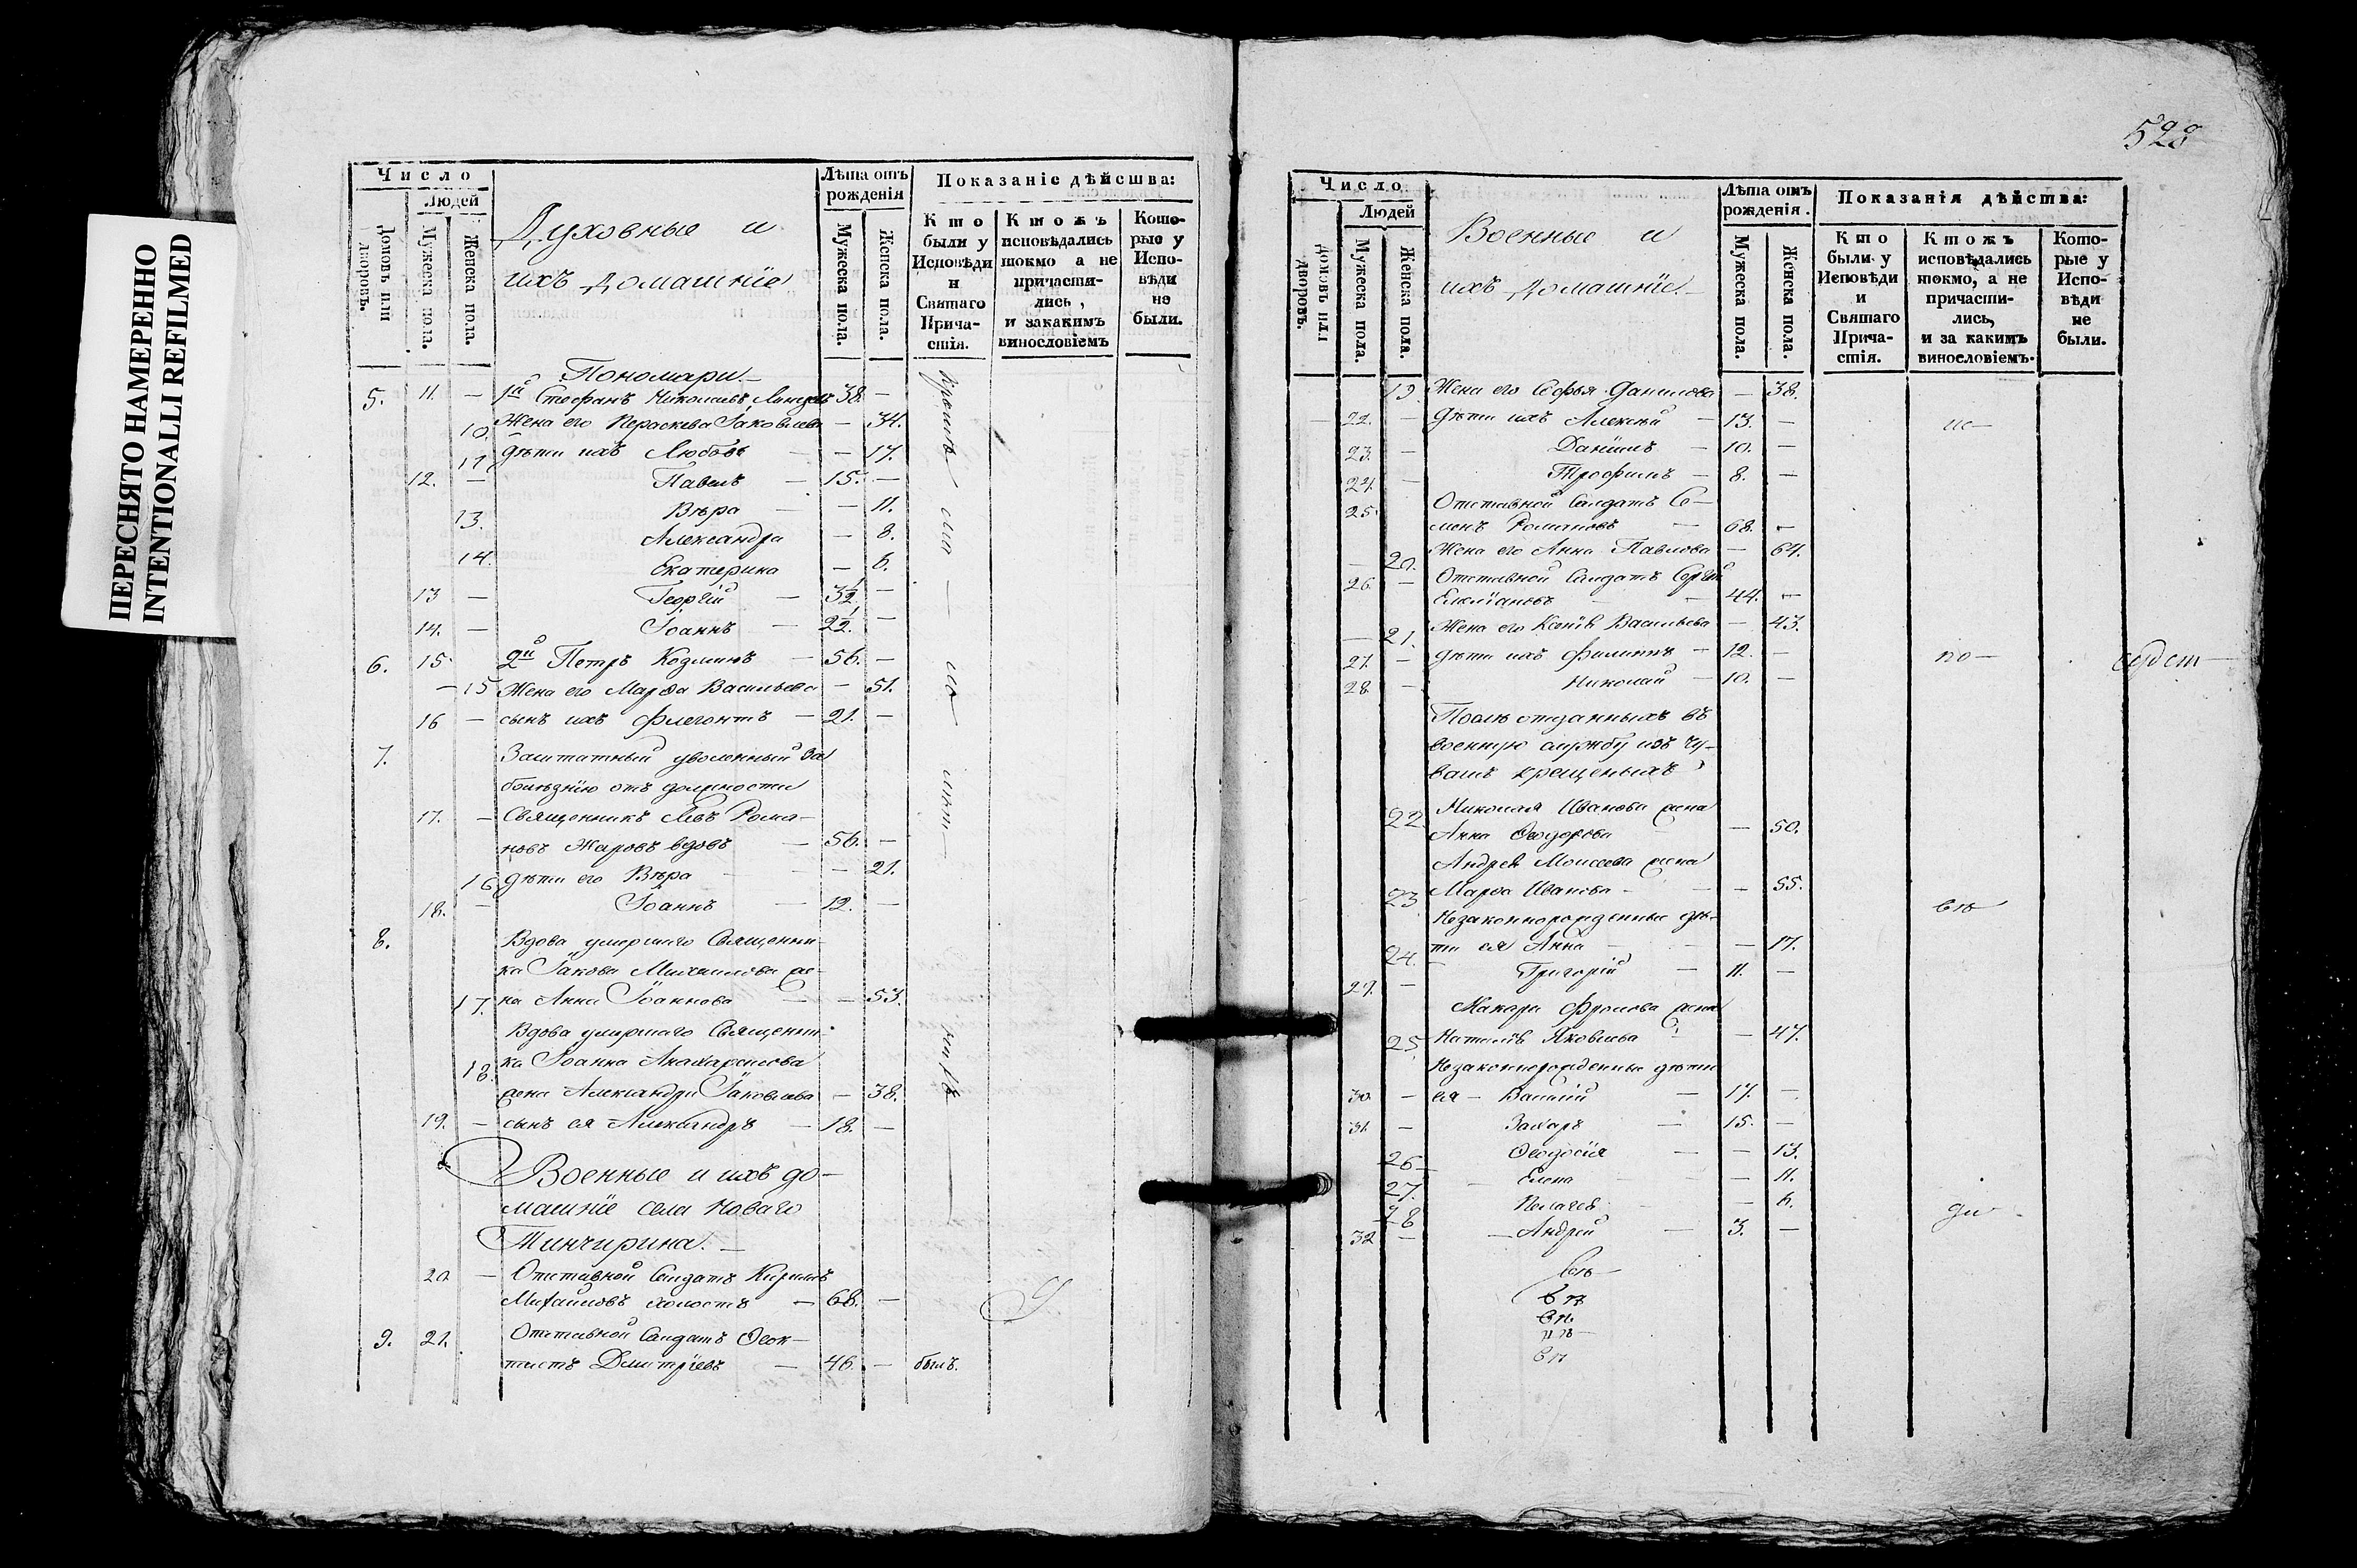 ПЕРЕСНЯТО НАМЕРЕННО
INTENTIONALLI REFILMED
Число
Людей
Домовъ или дворовъ.
Мужеска пола.
Женска пола.
Духовные и
ихъ домашнїе
Лѣта отъ рожденія
Мужеска пола.
Женска пола.
Показаніе дѣйства:
Кто были у Исповѣди и Святаго Причастія.
Ктожъ исповѣдались токмо а не причастились, и закакимъ винословіемъ
Которые у Исповѣди не были.
Пономари.
5. 11. — 1й Стефанъ Николаевъ 38. —
10. Жена его Параскева Іаковлева — 34.
11. Дѣти ихъ Любовь — 17.
12. — Павелъ — 15. —
Вѣра — 11.
13. Александра — 8.
14. Екатерина — 6.
13 — Георгій — 3½ —
14. — Іоаннъ — 2½. —
6. 15. 2й Петръ Козминъ — 56. —
— 15 Жена его Марѳа Васильева — 51.
16 — сынъ ихъ Флегонтъ — 21. —
7. Заштатный уволенный за
болѣзнїю отъ должности
17. — Священникъ Левъ Рома-
новъ Жаровъ вдовъ — 56. —
16 дѣти его Вѣра — 21.
18. — Іоаннъ — 12. —
8. Вдова умершаго Священни-
ка Іакова Михайлова же-
17. на Анна Іоаннова — 53.
Вдова умершаго Священни-
18. ка Іоанна
жена Александра Іаковлева — 38.
19. — сынъ ея Александръ — 18. —
Военные и ихъ до-
машнїе села Новаго
Тинчурина. —
20 — Отставной Солдатъ Кирилъ
Михайловъ холостъ — 68. —
9. 21. Отставной Солдатъ Ѳеок-
тистъ Дмитрїевъ — 46. — былъ.
528
Число
Людей
Домовъ или дворовъ.
Мужеска пола.
Женска пола.
Военные и
ихъ домашнїе. —
Лѣта отъ рожденія.
Мужеска пола.
Женска пола.
Показанія дѣйства:
Кто были у Исповѣди и Святаго Причастія.
Ктожъ исповѣдались токмо, а не причастились, и за какимъ винословіемъ.
Которые у Исповѣди не были.
19. Жена его Софья Данилова — 38.
22. — Дѣти ихъ Алексѣй — 13. — ис—
23. — Данїилъ — 10. —
24. — Трофимъ — 8. —
25. Отставной Солдатъ Се-
менъ Романовъ — 68. —
20. Жена его Анна Павлова — 64.
26. — Отставной Солдатъ Сергѣй
— 44. —
— 21. Жена его Ксенїя Васильева — 43.
27. — дѣти ихъ Филиппъ — 12. — по—
28. — Николай — 10. —
Послѣ отданныхъ въ
военную службу изъ чу-
вашъ крещеныхъ
22. Николая Иванова жена
Анна Ѳеодорова — 50.
Андрея Моисеева жена
23 Марѳа Иванова — 55.
Незаконнорожденные дѣ- вѣ
24. ти ея Анна — 17.
29. — Григорій — 11. —
Макара Фролова жена
25 Наталїя Яковлева — 47.
Незаконнорожденные дѣти
30. — ея — Василїй — 17. —
31. — Захаръ — 15. —
26 — Ѳеодосїя — 13.
27. Елена — 11.
28 Пелагея — 6. ди
32 — Андрей — 3. —